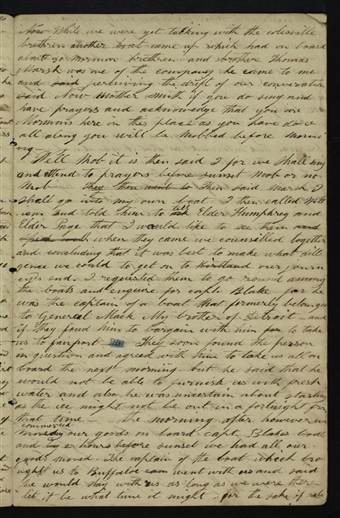 Now While we were yet talking with the colesville
brethren another boat came up which had on board
about 30 mormon brethren and brother Thomas
Marsh was one of the company he came to me
and said percieving the drift of our conversation
said Now Mother Smith if you do sing and
have prayers and acknowledge that you are
Mormons here in this place as you have done
all along you will be mobbed before morni
ng
Well Mob it is then said I for we shall sing
and attend to prayers before sunset Mob or no
Mob They then went to Then said Marsh I
shall go into my own boat I then called Will
iam and told him to tell Elder Humphrey and
Elder Page that I would like to see them and
when they came we counsilled together
and concluding that it was best to make what dili
gence we could to get on to kirtland our journ
ey's end I requested them to go round among
the boats and enquire for capt Blake for he
was the captain of a boat that formerly belonged
to General Mack My brother of Detroit and
if they found him to bargain with him for to take
us to fairport They soon found the person
in question and agreed with him to take us all on
board the next morning but he said that he
would not be able to furnish us with fresh
water and also he was uncertain about starting
as the ice might not be out in a fortnight from
that time the morning after however we
commenced our goods on board capt Blakes boat
and hours before sunset we had all our
goods moved The captain of the boat which bro
ught us to Buffaloe went with us and said
he would stay with us as long as we were there
let it be what time it might for the sake of